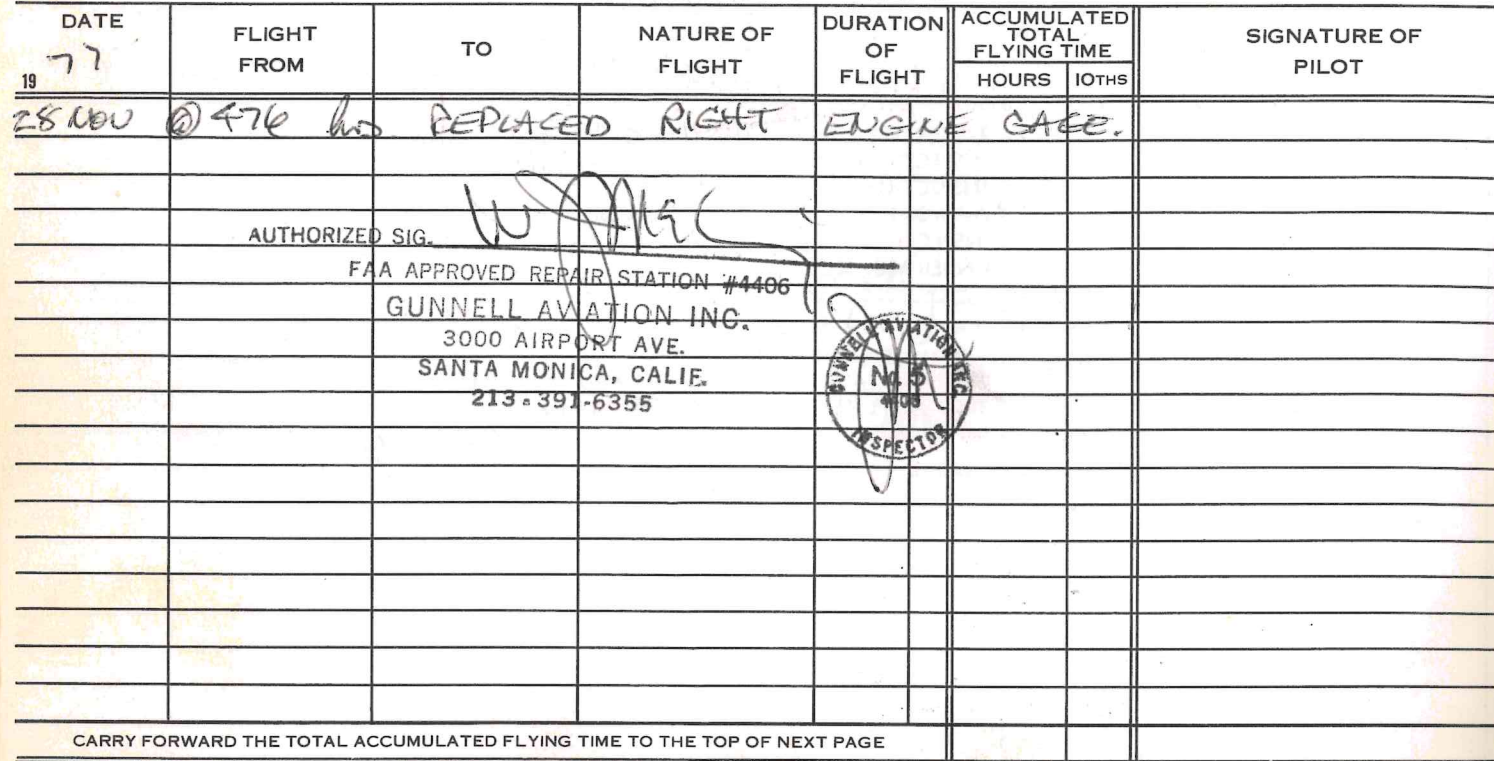 DATE FLIGHT FROM TO NATURE OF FLIGHT DURATION OF FLIGHT ACCUMULATED TOTAL FLYING TIME SIGNATURE OF PILOT
19 77 HOURS 10THS
28 NOV @ 476 hrs REPLACED RIGHT ENGINE GAGE.
AUTHORIZED SIG.
FAA APPROVED REPAIR STATION #4406
GUNNELL AVIATION INC.
3000 AIRPORT AVE.
SANTA MONICA, CALIF.
213-391-6355
GUNNELL AVIATION INC.
No. 5
4406
INSPECTOR
CARRY FORWARD THE TOTAL ACCUMULATED FLYING TIME TO THE TOP OF NEXT PAGE